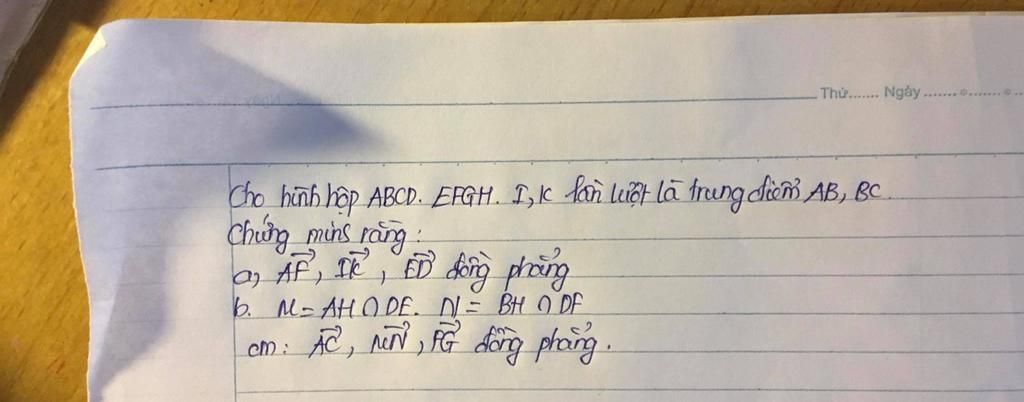 Thứ....... Ngày ...............
Cho hình hộp ABCD. EFGH. I, K lần lượt là trung điểm AB, BC.
Chứng mins rằng:
a, AF→, IK→, ED→ đồng phẳng
b. M = AH ∩ DE. N = BH ∩ DF
cm: AC→, MN→, FG→ đồng phẳng.